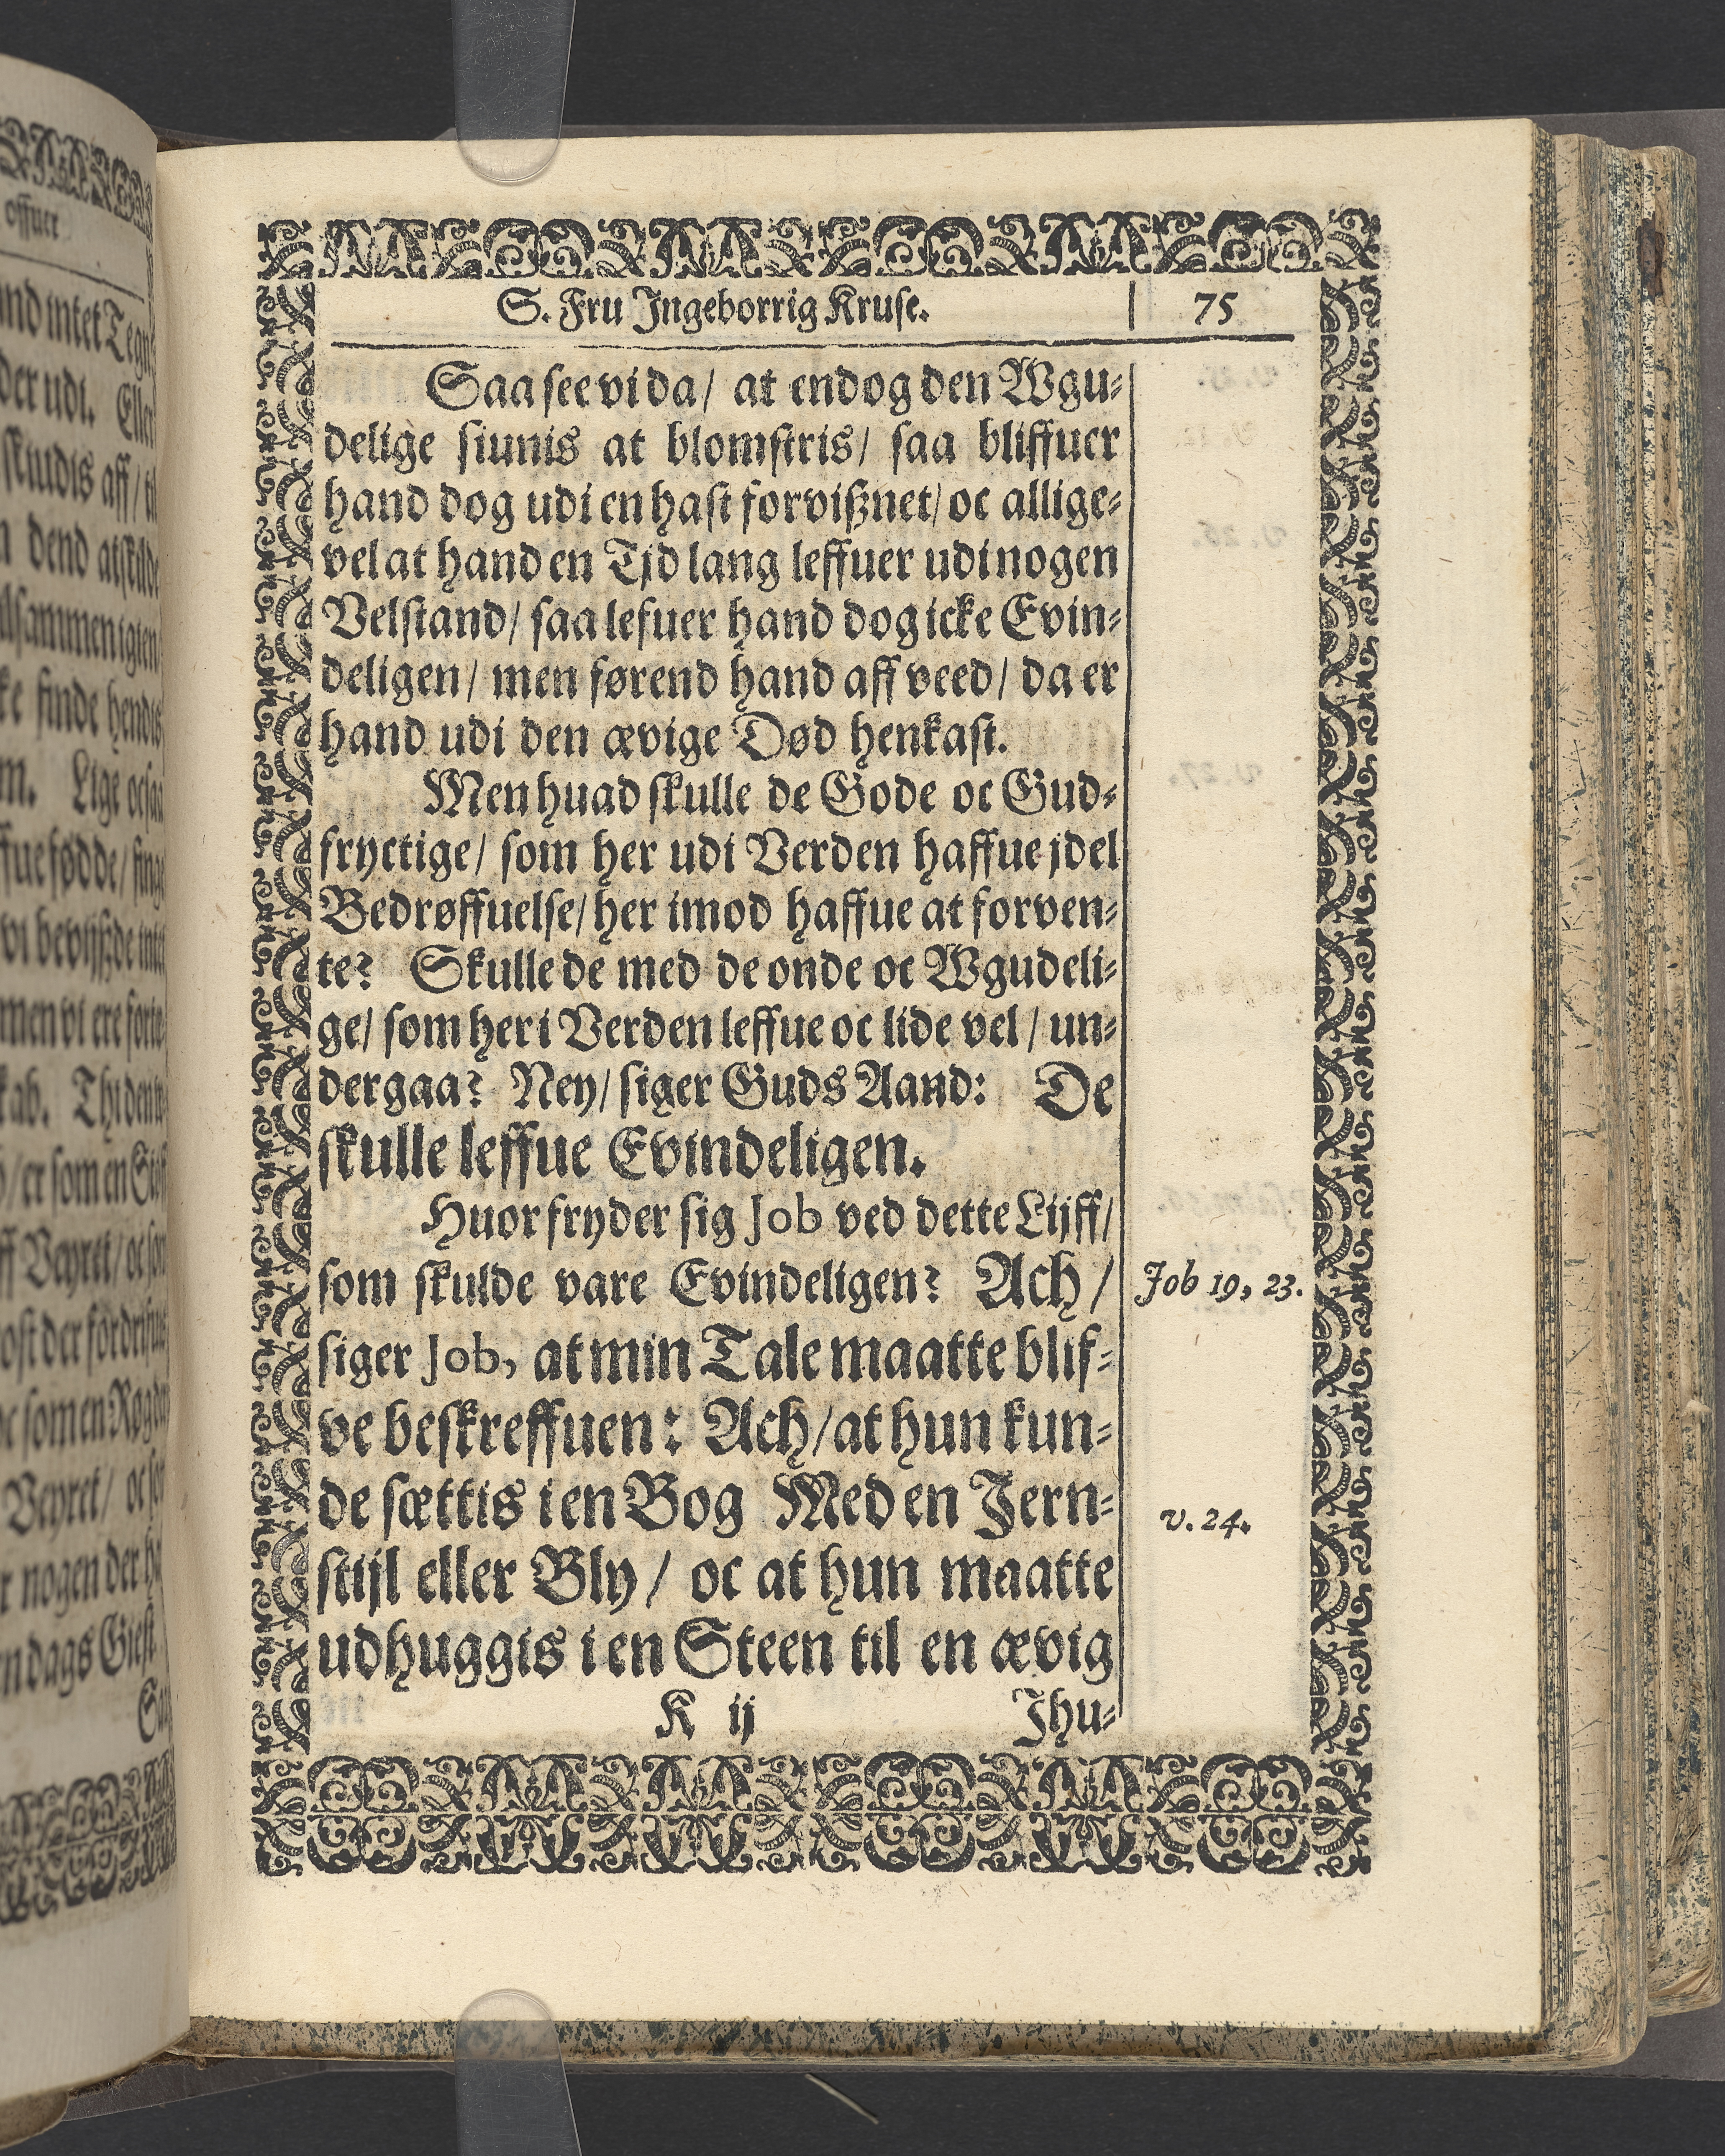 S. Fru Ingeborrig Kruse. | 75
Saa see vi da/ at endog den Wgu-
delige siunis at blomstris/ saa bliffuer
hand dog udi en hast forvißnet/ oc allige-
vel at hand en Tjd lang leffuer udi nogen
Velstand/ saa lefuer hand dog icke Evin-
deligen/ men førend hand aff veed/ da er
hand udi den ævige Død henkast.
Men huad skulle de Gode oc Gud-
fryctige/ som her udi Verden haffue jdel
Bedrøffuelse/ her imod haffue at forven-
te? Skulle de med de onde oc Wgudeli-
ge/ som her i Verden leffue oc lide vel/ un-
dergaa? Ney/ siger Guds Aand: De
skulle leffue Evindeligen.
Huor fryder sig Job ved dette Lijff/
som skulde vare Evindeligen? Ach/ Job 19, 23.
siger Job, at min Tale maatte blif-
ve beskreffuen: Ach/ at hun kun-
de sættis i en Bog Med en Jern- v. 24.
stijl eller Bly/ oc at hun maatte
udhuggis i en Steen til en ævig
K ij Ihu-
offuer
der udi. Eller
dend atskilde
finde hendis
Lige ocsaa
men vi ere
Veyret/ oc
nogen der
dags Giest